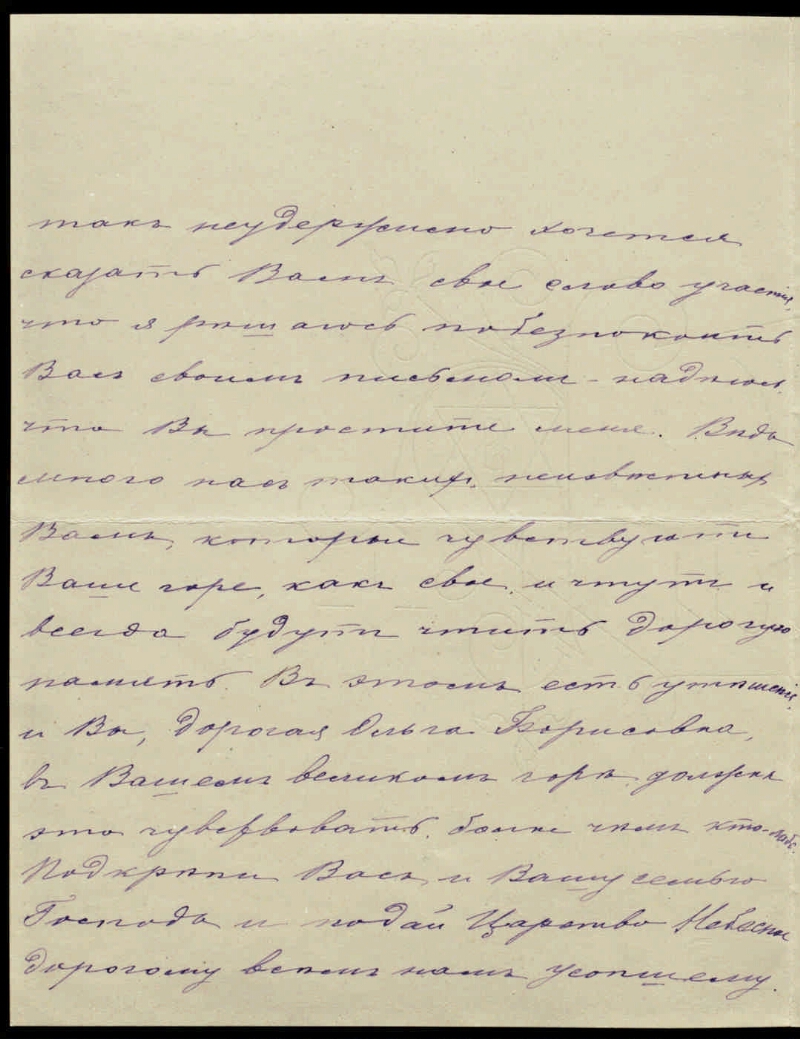 такъ неудержимо хочется
сказать Вамъ свое слово участія,
что я рѣшаюсь побезпокоить
Васъ своимъ письмомъ - надѣюсь,
что Вы простите меня. Вѣдь
много насъ такихъ, неизвѣстныхъ
Вамъ, которые чувствуютъ
Ваше горе, какъ свое, и чтутъ и
всегда будутъ чтить дорогую
память. Въ этомъ есть утѣшеніе,
и Вы, дорогая Ольга Борисовна,
въ Вашемъ великомъ горѣ, должны
это чувствовать, болѣе чѣмъ кто-либо.
Подкрѣпи Васъ и Вашу семью
Господь и подай Царство Небесное
дорогому всѣмъ намъ усопшему.